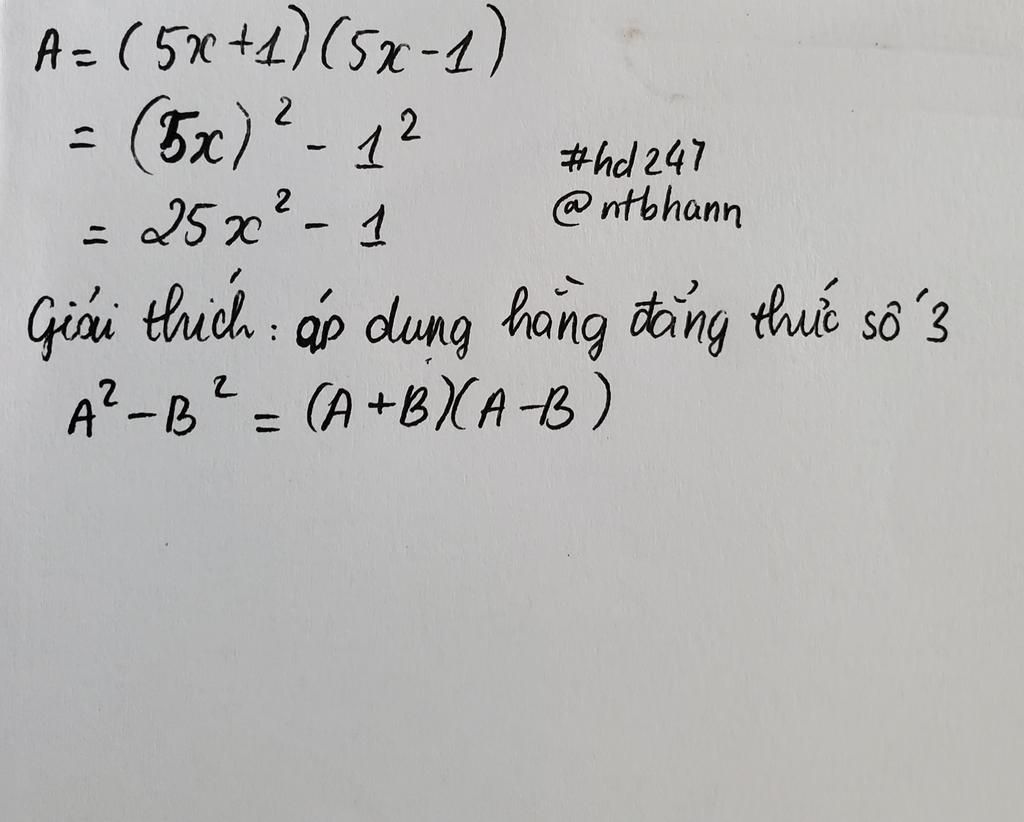 A = (5x+1)(5x-1)
= (5x)² - 1²
= 25x² - 1
#hd247
@ntbhann
Giải thích: áp dụng hằng đẳng thức số 3
A² - B² = (A+B)(A-B)